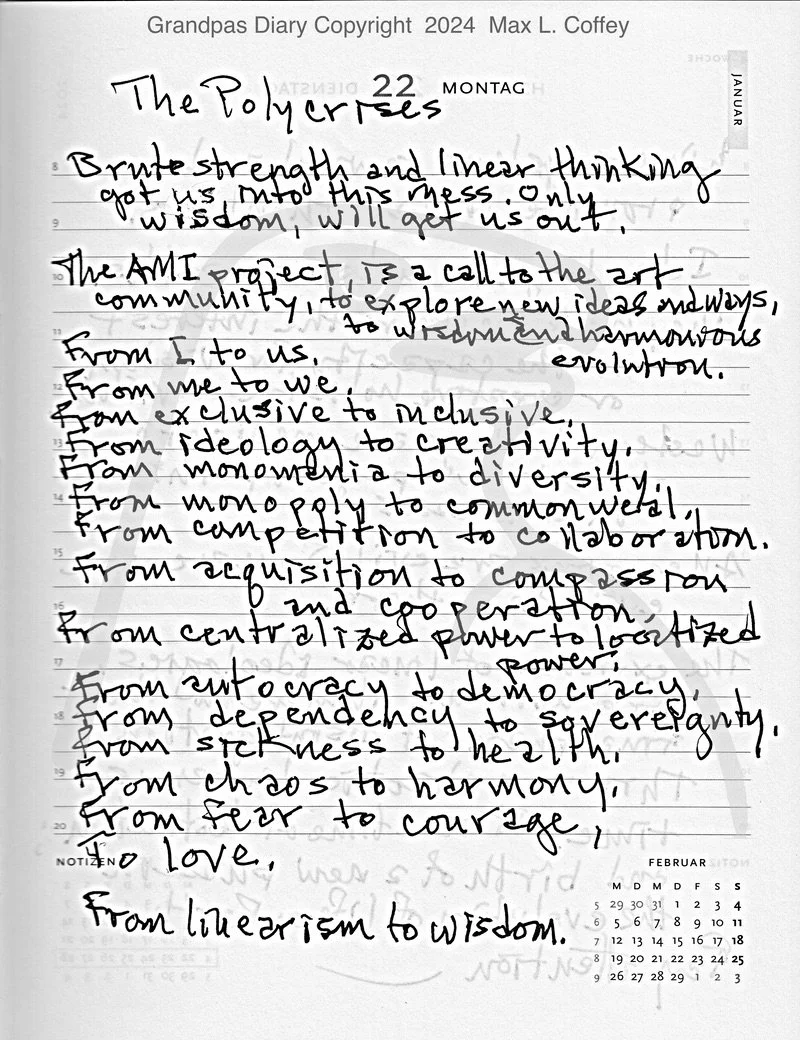 Grandpas Diary Copyright 2024 Max L. Coffey
22 MONTAG
JANUAR
The Polycrises
Brute strength and linear thinking
got us into this mess. Only
wisdom, will get us out.
The AMI project, is a call to the art
community, to explore new ideas and ways,
to wisdom and harmonious
evolution.
From I to us.
From me to we.
From exclusive to inclusive.
From ideology to creativity.
From monomania to diversity.
From monopoly to commonweal.
From competition to collaboration.
From acquisition to compassion
and cooperation.
From centralized power to localized
power.
From autocracy to democracy.
From dependency to sovereignty.
From sickness to health.
From chaos to harmony.
From fear to courage,
To love.
From linearism to wisdom.
8
9
10
11
12
13
14
15
16
17
18
19
20
NOTIZEN
FEBRUAR
M D M D F S S
5 29 30 31 1 2 3 4
6 5 6 7 8 9 10 11
7 12 13 14 15 16 17 18
8 19 20 21 22 23 24 25
9 26 27 28 29 1 2 3